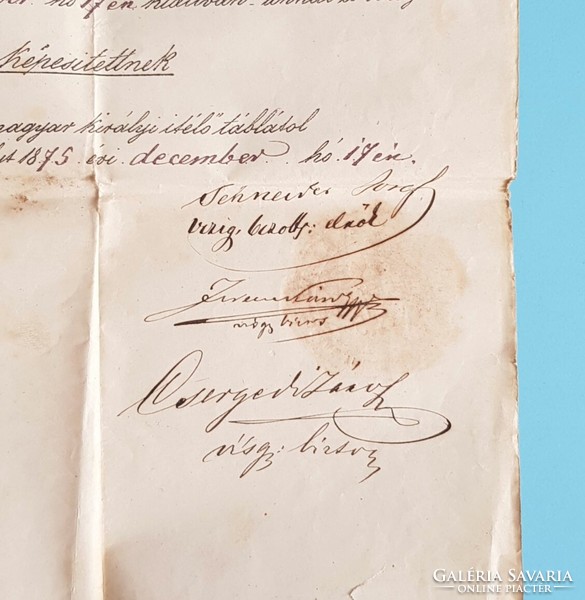 hó 17 én
Képesítettnek
magyar királyi itélő táblától
1875. évi december hó 17 én.
Schneider Josef
vizsg. bizotts: elnök
vizsg bizt
Csergedi János
vizsg: bizto
GALÉRIA SAVARIA
ONLINE PIACTÉR